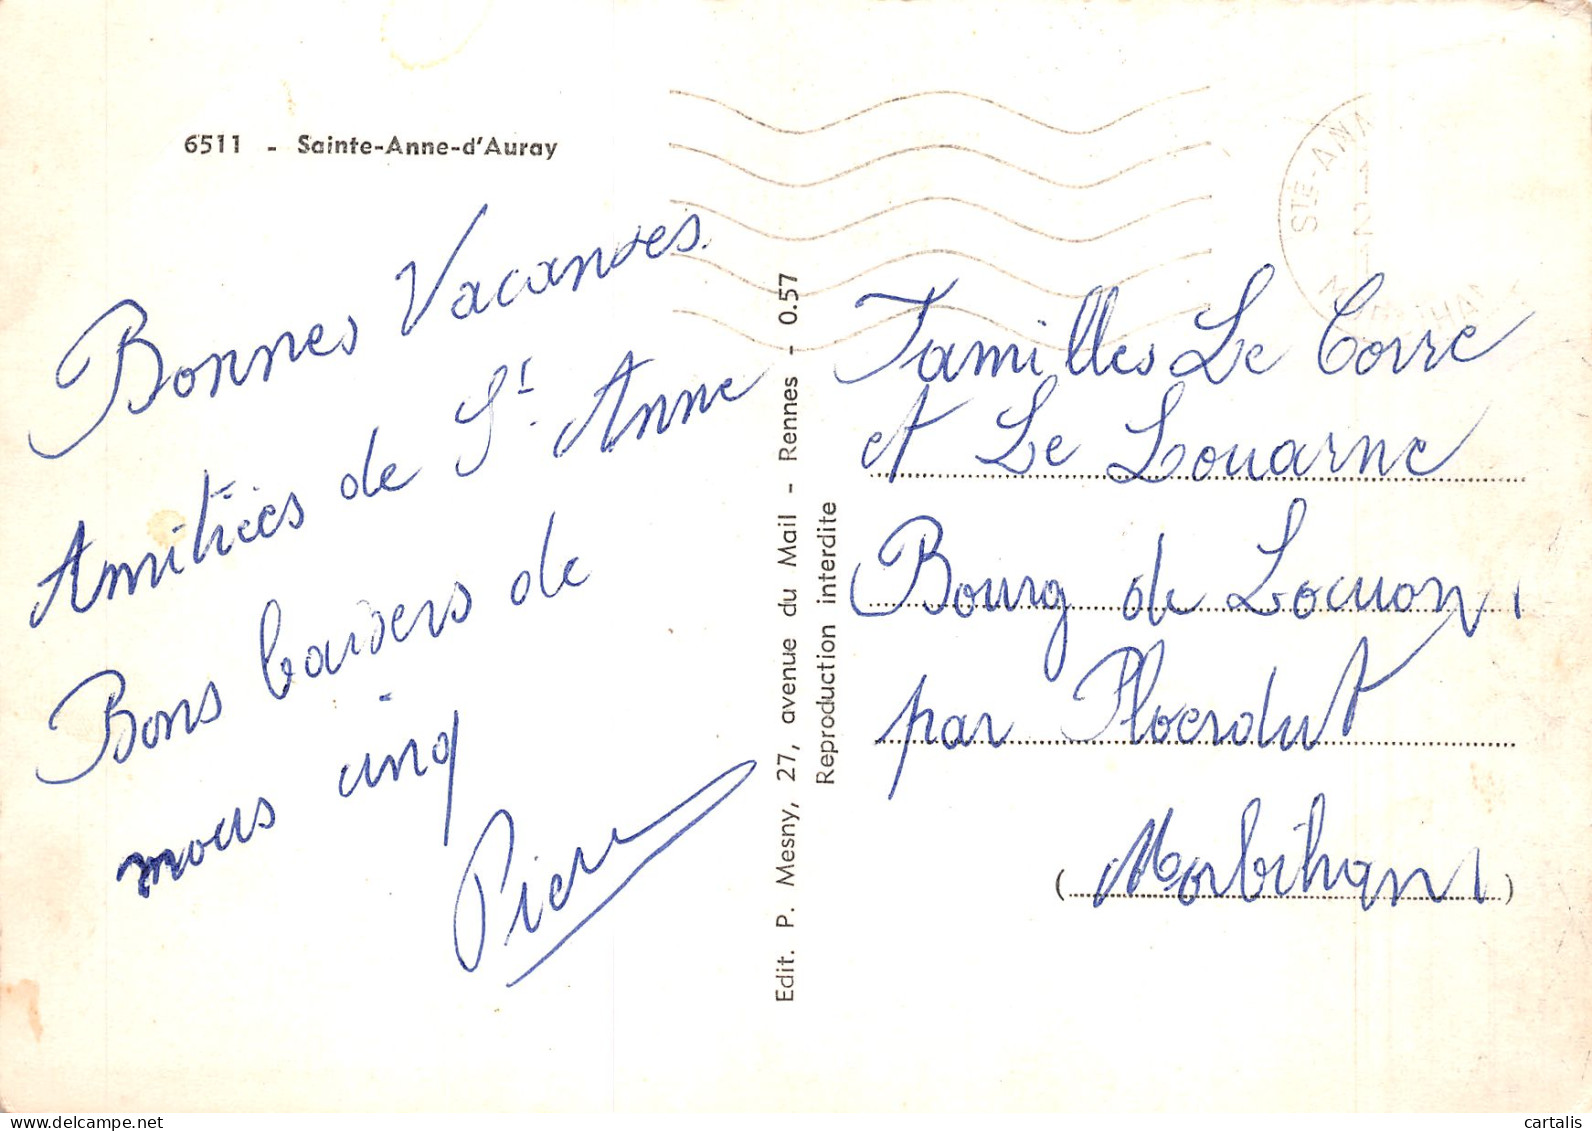 6511 - Sainte-Anne-d'Auray
Bonnes Vacances.
Amitiées de St. Anne
Bons baisers de
nous cinq
Pierre
Edit. P. Mesny, 27, avenue du Mail - Rennes - 0.57
Reproduction interdite
STE-ANN
Familles Le Corre
et Le Louarne
Bourg de Locuon,
par Ploerdut
(Morbihan)
cartalis